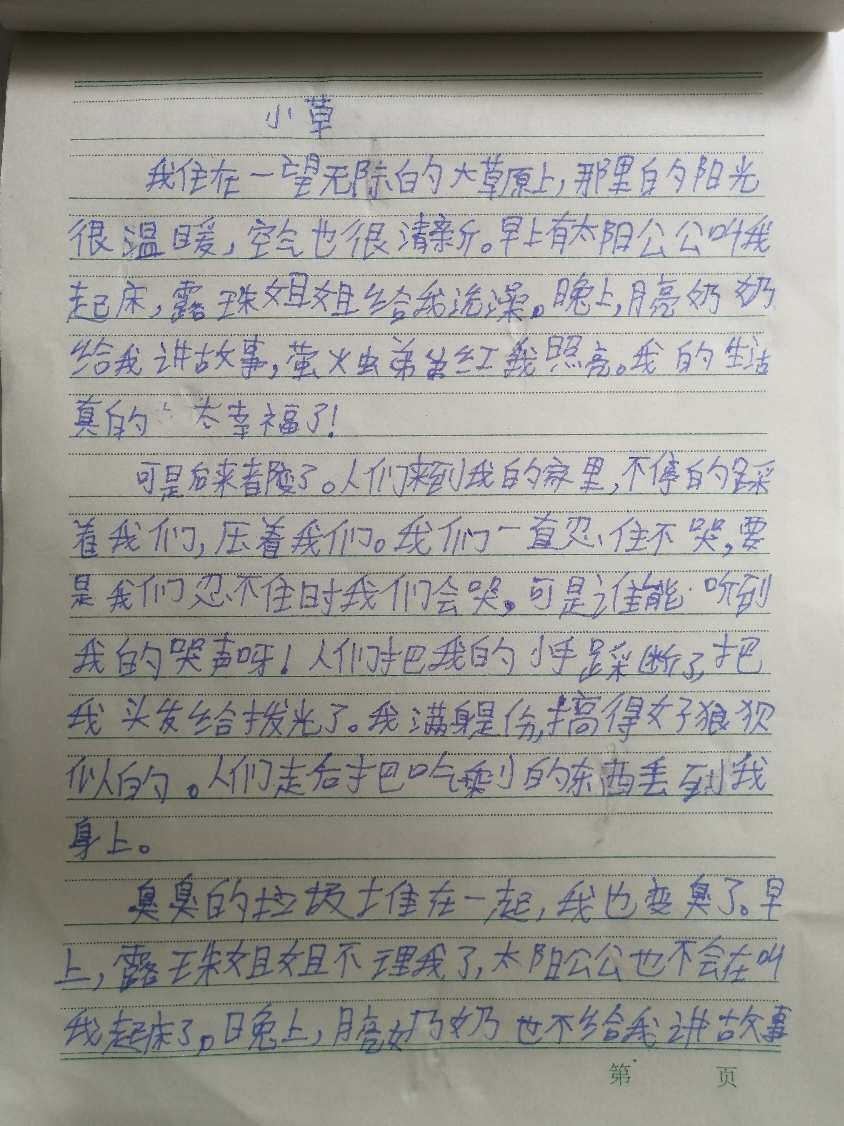 小草
我住在一望无际的大草原上,那里的阳光
很温暖,空气也很清新。早上有太阳公公叫我
起床,露珠姐姐给我洗澡。晚上,月亮奶奶
给我讲故事,萤火虫弟弟红我照亮。我的生活
真的太幸福了!
可是后来都变了。人们来到我的家里,不停的踩
着我们,压着我们。我们一直忍住不哭,要
是我们忍不住时我们会哭。可是谁能听到
我的哭声呀!人们把我的小手踩断了,把
我头发给拨光了。我满身是伤,搞得好狼狈
似的。人们走后把吃剩的东西丢到我
身上。
臭臭的垃圾堆在一起,我也变臭了。早
上,露珠姐姐不理我了,太阳公公也不会在叫
我起床了。晚上,月亮奶奶也不给我讲故事
第 页